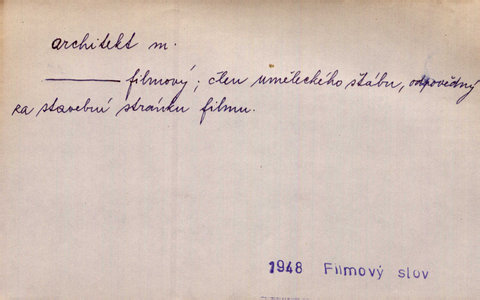 architekt m.
——— filmový; člen uměleckého štábu, odpovědný
za stavební stránku filmu.
1948 Filmový slov